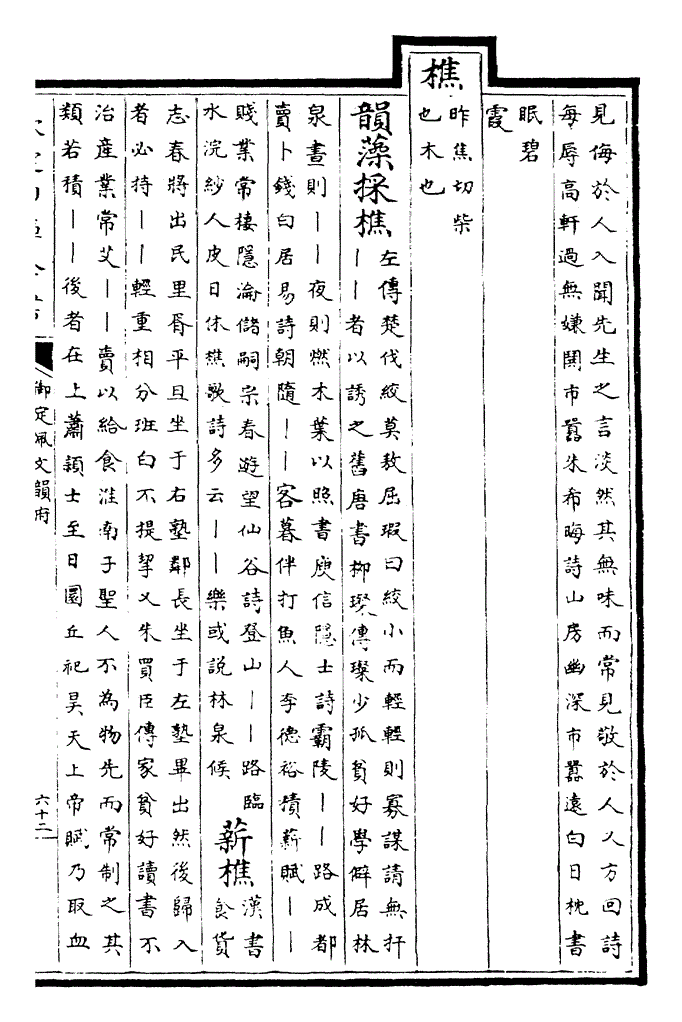 見侮於人入聞先生之言淡然其無味而常見敬於人乂方回詩
每辱高軒過無嫌闤市囂朱希晦詩山房幽深市囂遠白日枕書
眠碧
霞
樵
昨焦切柴
也木也
韻藻採樵
左傳楚伐絞莫敖屈瑕曰絞小而輕輕則寡謀請無扞
丨丨者以誘之舊唐書柳璨傳璨少孤貧好學僻居林
泉晝則丨丨夜則燃木葉以照書庾信隱士詩霸陵丨丨路成都
賣卜錢白居易詩朝隨丨丨客暮伴打魚人李德裕積薪賦丨丨
賤業常棲隱淪儲嗣宗春遊望仙谷詩登山丨丨路臨
水浣紗人皮日休樵歌詩多云丨丨樂或說林泉候
薪樵
漢書
食貨
志春將出民里胥平旦坐于右塾鄰長坐于左塾畢出然後歸入
者必持丨丨輕重相分班白不提挈乂朱買臣傳家貧好讀書不
治產業常艾丨丨賣以給食淮南子聖人不為物先而常制之其
類若積丨丨後者在上蕭穎士至日圜丘祀昊天上帝賦乃取血
御定佩文韻府
六十二